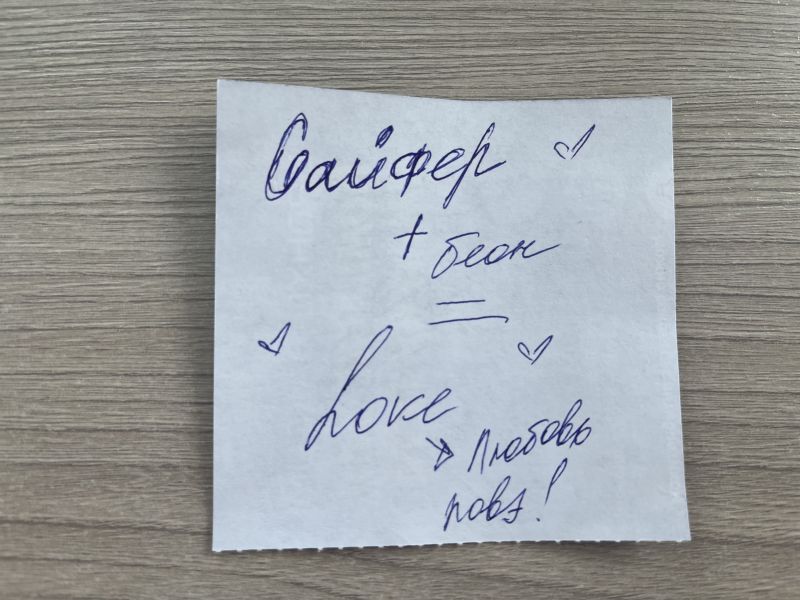 Сайфер
+ беон
=
Love
Любовь
навз!